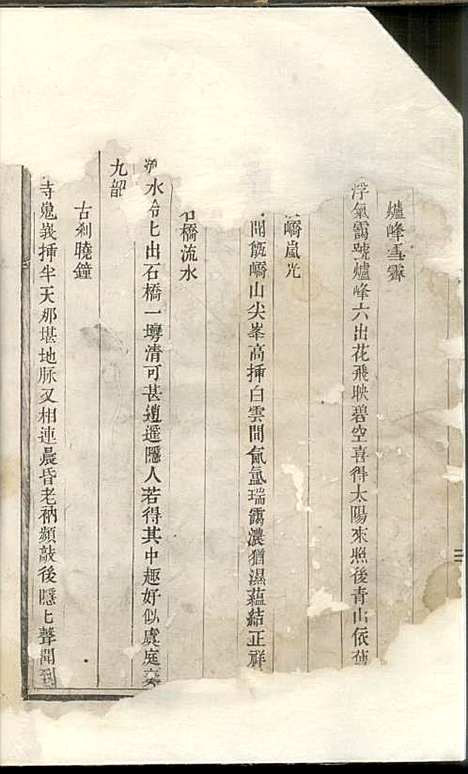 爐峰雪霽
浮氣靄號爐峰六出花飛映碧空喜得太陽來照後青山依舊
嶠嵐光
間甑嶠山尖峯高揷白雲間氤氳瑞靄濃猶濕蘊結正祥
石橋流水
水冷匕出石橋一灣清可甚逍遥隱人若得其中趣好似虞庭奏
九韶
古刹曉鐘
寺嵬峩揷半天那堪地脉又相連晨昏老衲頻敲後隱匕聲聞到